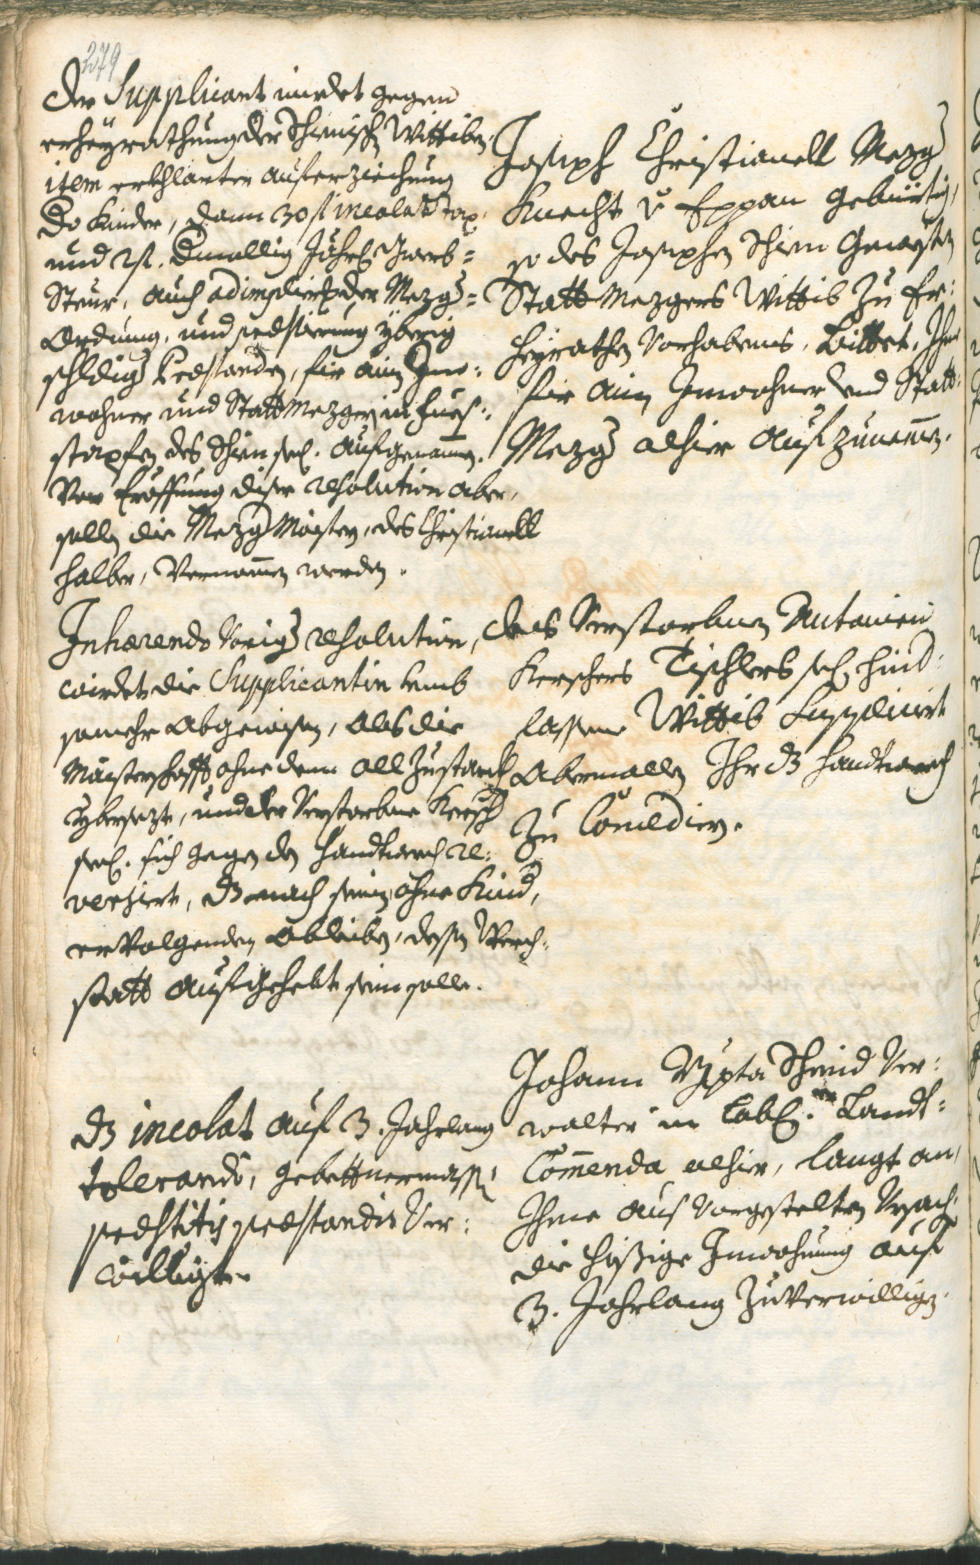 279
Der Supplicant wirdet gegen
erheyrathung der Thinnisch Wittiben
item erkhlärter auferziechung
der Kinder, dann 30 f incolat tax,
und 2 f. Jährl. Gwerb=
Steur, auch adimplierh der Mezg=
Ordnung, und yberig
schuldig Praestanden, für ain Inn=
wohner und Statt Mezger in Fues=
stapfen des Thinn seel. aufgenommen.
Vor Eröffnung diser resolution aber,
sollen die Mezg Maister, des Christianell
halber, vernommen werden.
Joseph Christianell Mezg
Knecht v Eppan gebürtig,
so des Josephen Thinn gewesten
Statt Mezgers Wittib zu Er=
heyrathen Vorhabens, Bittet, Ihne
für ain Innwohner und Statt=
Mezg alhier aufzunemmen.
Inhaerendo vorig resolution,
wirdet die Supplicantin umb
somehr abgewisen, als die
Maisterschafft ohne dem all zu starck
ybersezt, und der Verstorbne Kersch
seel. sich gegen den Handtwerch re=
versirt, dz nach sein ohne Kind,
ervolgenden ableiben, dessen Werch=
statt aufgehebt sein solle.
Des Verstorbnen Antonien
Kerschers Tischlers seel. hind=
lassene Wittib Supplicirt
abermallen Ihr dz Handtwerch
zu Concedirn.
dz incolat auf 3. Jahrlang
tolerando, gebettnermassen
praestitis praestandis Ver=
williget.
Johann Bapta Schmid Ver=
walter in Löbl. Landt=
Commenda alhier, langt an,
Ihme aus vorgestelten Ursach
die hiesige Innwohnung auf
3. Jahrlang zu verwilligen.